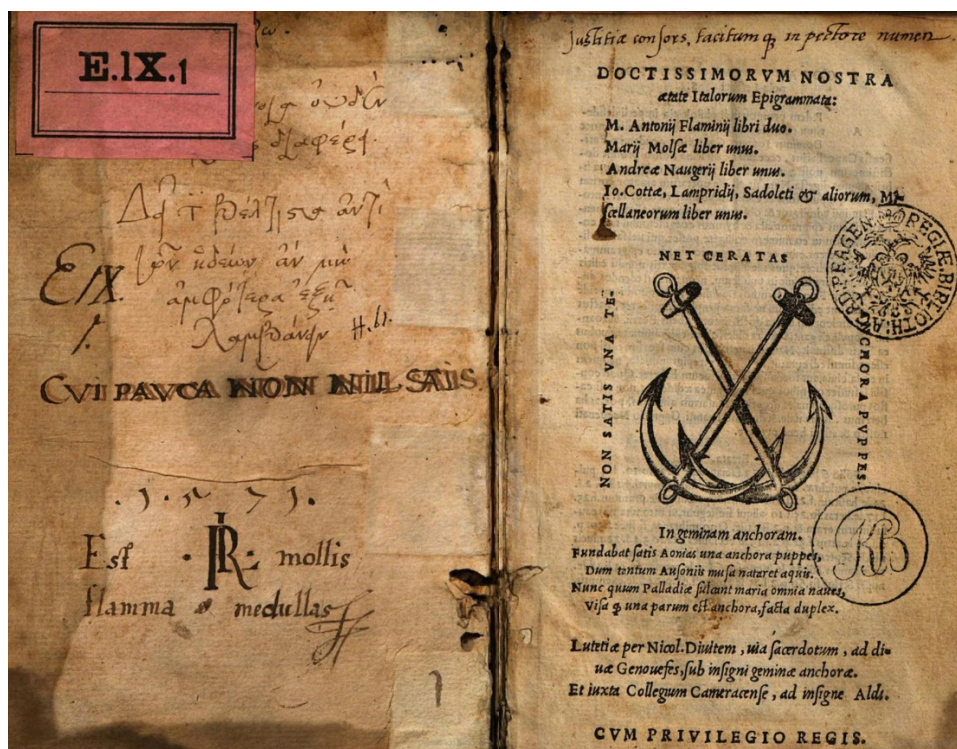 E.IX.1
E/IX.
1.
H. 61.
CVI PAVCA NON NILL SATIS
. 1 . 5 7 1 .
Est · R · mollis
flamma medullas
Justitiæ consors, tacitumq, in pectore numen.
DOCTISSIMORVM NOSTRA
ætate Italorum Epigrammata:
M. Antonij Flaminij libri duo.
Marij Molsæ liber unus.
Andreæ Naugerij liber unus.
Io. Cottæ, Lampridij, Sadoleti & aliorum, Mi-
scellaneorum liber unus.
NET CERATAS
NON SATIS VNA TE-
CHORA PVPPES.
REGIÆ BIBLIOTH: ACAD: PRAGEN:
In geminam anchoram.
Fundabat satis Aonias una anchora puppes,
Dum tantum Ausoniis musa nataret aquis.
Nunc quum Palladiæ sulcant maria omnia naues,
Visa q; una parum est anchora, facta duplex.
RB
Lutetiæ per Nicol. Diuitem, uia sacerdotum, ad di-
uæ Genouefes, sub insigni geminæ anchoræ.
Et iuxta Collegium Cameracense, ad insigne Aldi.
CVM PRIVILEGIO REGIS.